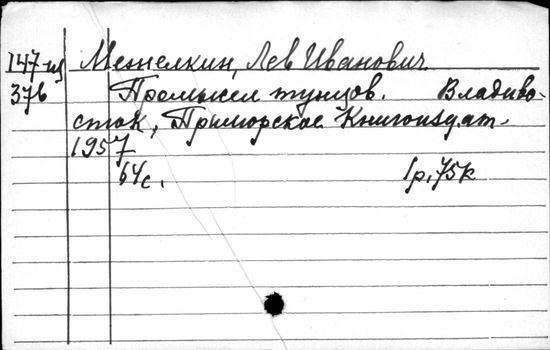 147-из Мезелкин, Лев Иванович
376 Промысел тунцов. Владиво-
сток, Приморское Книгоиздат.
1957
64с. 1р.75к